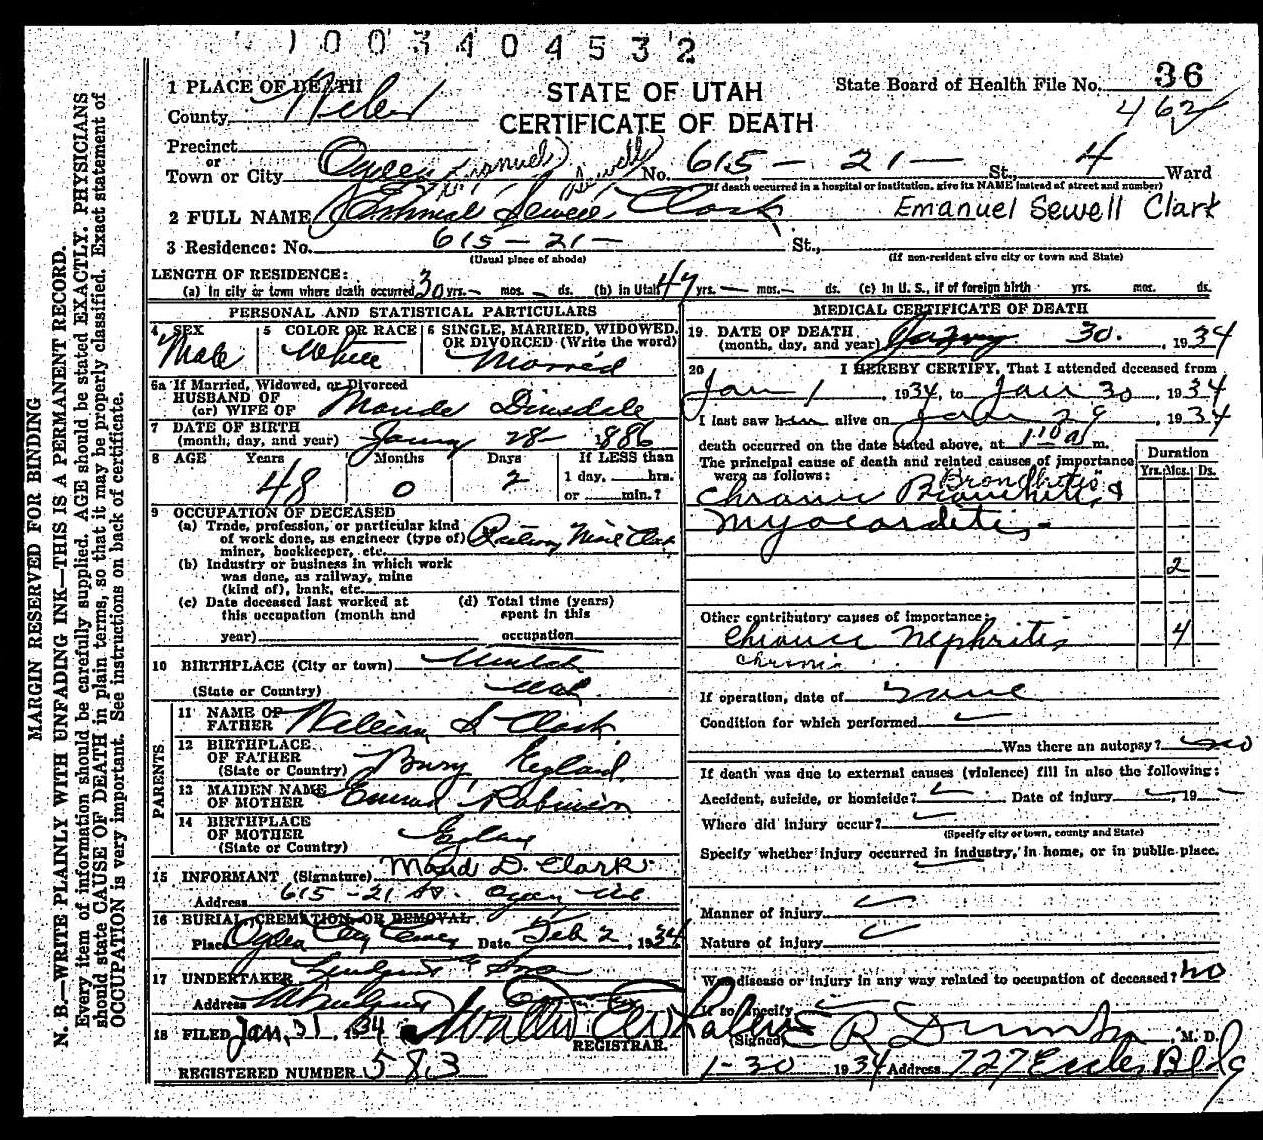 1003404532
STATE OF UTAH
CERTIFICATE OF DEATH
State Board of Health File No. 36
462
1 PLACE OF DEATH
County Weber
Precinct
or
Town or City Ogden No. 615 - 21 - St., 4 Ward
(If death occurred in a hospital or institution, give its NAME instead of street and number)
Emanuel Sewell
2 FULL NAME Sewell Clark Emanuel Sewell Clark
3 Residence: No. 615 - 21 - St.,
(Usual place of abode) (If non-resident give city or town and State)
LENGTH OF RESIDENCE:
(a) In city or town where death occurred 30 yrs. - mos. - ds. (b) in Utah 47 yrs. - mos. - ds. (c) In U. S., if of foreign birth yrs. mos. ds.
PERSONAL AND STATISTICAL PARTICULARS
4 SEX Male
5 COLOR OR RACE White
6 SINGLE, MARRIED, WIDOWED, OR DIVORCED (Write the word) Married
6a If Married, Widowed, or Divorced
HUSBAND OF
(or) WIFE OF Maude Dinsdale
7 DATE OF BIRTH
(month, day, and year) January 28 - 1886
8 AGE Years Months Days If LESS than
48 0 2 1 day, hrs.
or min.?
9 OCCUPATION OF DECEASED
(a) Trade, profession, or particular kind
of work done, as engineer (type of)
miner, bookkeeper, etc. Railway Mail Clerk
(b) Industry or business in which work
was done, as railway, mine
(kind of), bank, etc.
(c) Date deceased last worked at
this occupation (month and
year)
(d) Total time (years)
spent in this
occupation
10 BIRTHPLACE (City or town)
(State or Country) Utah
PARENTS
11 NAME OF
FATHER William S Clark
12 BIRTHPLACE
OF FATHER
(State or Country) Bury, England
13 MAIDEN NAME
OF MOTHER Robinson
14 BIRTHPLACE
OF MOTHER
(State or Country) England
15 INFORMANT (Signature) Maud D. Clark
Address 615 - 21 St. Ogden, Ut
16 BURIAL, CREMATION, OR REMOVAL
Place Ogden City Cemey Date Feb 2, 1934
17 UNDERTAKER Lindquist & Sons
Address
18 FILED Jan. 31, 1934
REGISTRAR.
REGISTERED NUMBER 583
MEDICAL CERTIFICATE OF DEATH
19 DATE OF DEATH
(month, day, and year) January 30. , 1934
20 I HEREBY CERTIFY, That I attended deceased from
Jan 1 , 1934, to Jan 30 , 1934
I last saw him alive on Jan 29 , 1934
death occurred on the date stated above, at 1:10 a m.
The principal cause of death and related causes of importance
were as follows:
Duration
Yrs. Mos. Ds.
Bronchitis
Chronic Bronchitis &
Myocarditis -
2
Other contributory causes of importance:
Chronic Nephritis 4
chronic
If operation, date of none
Condition for which performed
Was there an autopsy? no
If death was due to external causes (violence) fill in also the following:
Accident, suicide, or homicide? Date of injury , 19
Where did injury occur?
(Specify city or town, county and State)
Specify whether injury occurred in industry, in home, or in public place.
Manner of injury
Nature of injury
Was disease or injury in any way related to occupation of deceased? no
If so, specify
(Signed) E R Dumke , M. D.
1-30 1934 Address 727 Eccles Bldg
MARGIN RESERVED FOR BINDING
N. B.—WRITE PLAINLY WITH UNFADING INK—THIS IS A PERMANENT RECORD.
Every item of information should be carefully supplied. AGE should be stated EXACTLY. PHYSICIANS
should state CAUSE OF DEATH in plain terms, so that it may be properly classified. Exact statement of
OCCUPATION is very important. See instructions on back of certificate.